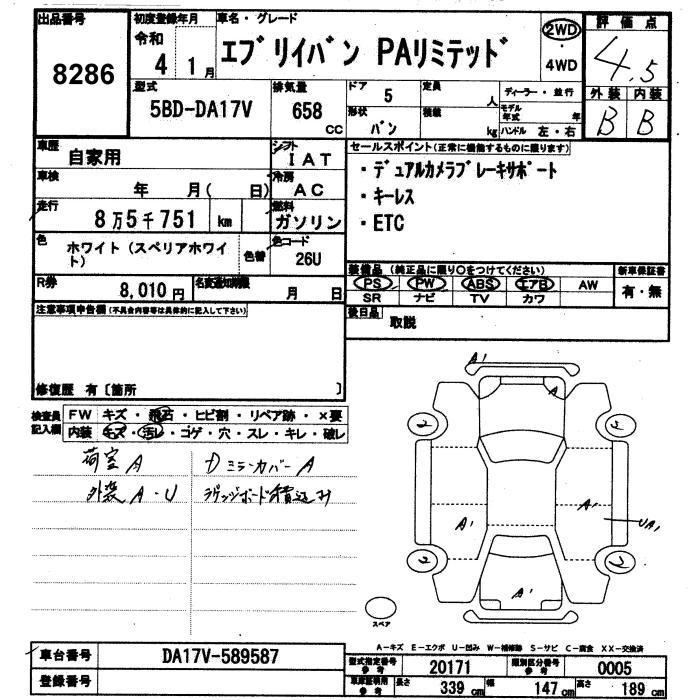 出品番号
8286
初度登録年月
令和
4年1月
車名・グレード
エブリイバン PAリミテッド
2WD
・
4WD
評価点
4.5
外装 内装
B B
型式
5BD-DA17V
排気量
658
cc
ドア
5
形状
バン
定員
人
積載
kg
ディーラー・並行
モデル年式 年
ハンドル 左・右
車歴
自家用
シフト
IAT
車検
年 月( 日)
冷房
AC
走行
8万5千751 km
燃料
ガソリン
色
ホワイト(スペリアホワイト)
色替
色コード
26U
R券
8,010円
名変通知期限
月 日
セールスポイント(正常に機能するものに限ります)
・デュアルカメラブレーキサポート
・キーレス
・ETC
装備品(純正品に限り○をつけてください)
PS PW ABS エアB AW
SR ナビ TV カワ
新車保証書
有・無
後日品
取説
注意事項申告欄(不具合内容等は具体的に記入して下さい)
修復歴 有〔箇所 〕
検査員記入欄
FW キズ・飛石・ヒビ割・リペア跡・×要
内装 キズ・汚レ・コゲ・穴・スレ・キレ・破レ
荷室A
DミラーカバーA
外装A・U
ラゲッジボード積込み
A1
A
A1
A1
UA1
A1
スペア
A−キズ E−エクボ U−凹み W−補修跡 S−サビ C−腐食 XX−交換済
車台番号
DA17V-589587
登録番号
型式指定番号
参考
20171
類別区分番号
参考
0005
車庫証明用
参考
長さ 339 cm 幅 147 cm 高さ 189 cm